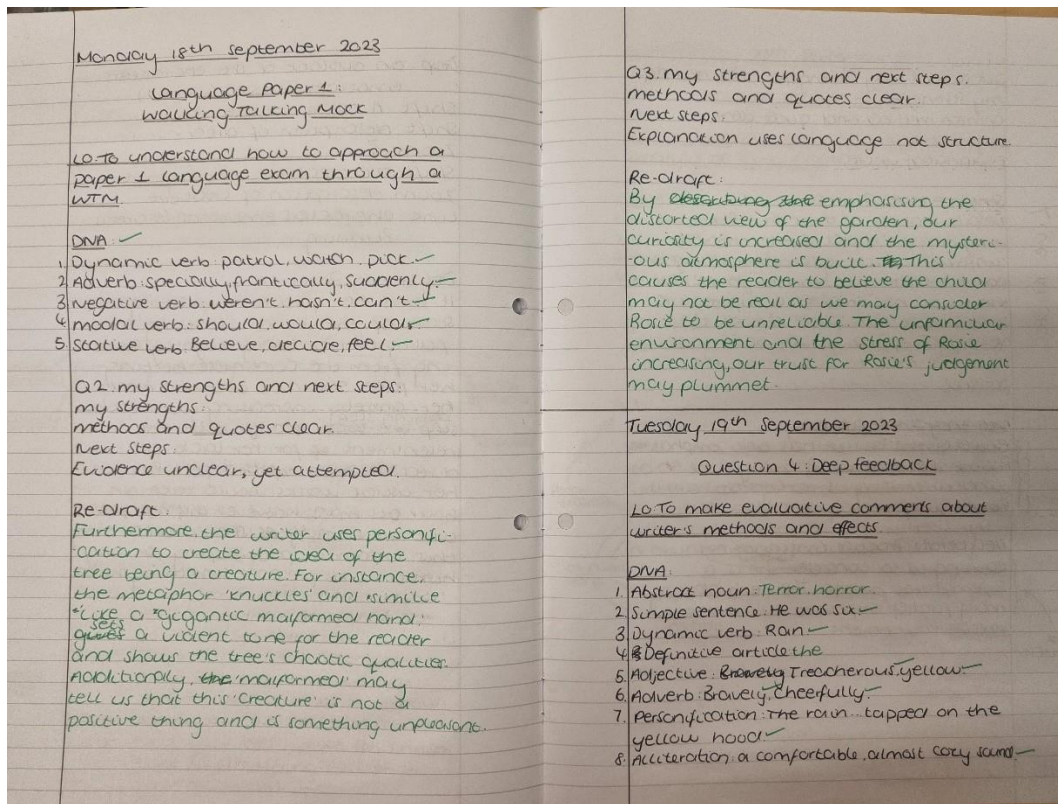 Monday 18th september 2023
Language Paper 1:
Walking Talking Mock
LO:To understand how to approach a
paper 1 language exam through a
WTM.
DNA:
1. Dynamic verb: patrol, watch, pick.
2 Adverb: specially, frantically, suddenly
3 Negative verb: weren't, hasn't, can't
4 modal verb: should, would, could
5 Stative verb: Believe, decide, feel
Q2. my strengths and next steps:
my strengths:
methods and quotes clear.
Next steps
Evidence unclear, yet attempted.
Re-draft:
Furthermore, the writer uses personifi-
-cation to create the idea of the
tree being a creature. For instance,
the metaphor 'knuckles' and simile
"Like a "gigantic malformed hand'
sets
gives a violent tone for the reader
and shows the tree's chaotic qualities.
Additionally, the 'malformed' may
tell us that this 'creature' is not a
positive thing and is something unpleasant.
Q3. my strengths and next steps.
methods and quotes clear.
Next steps:
Explanation uses language not structure.
Re-draft:
By describing the emphasising the
distorted view of the garden, our
curiosity is increased and the mysteri-
-ous atmosphere is built. This
causes the reader to believe the child
may not be real as we may consider
Rosie to be unreliable. The unfamiliar
environment and the stress of Rosie
increasing, our trust for Rosie's judgement
may plummet.
Tuesday 19th September 2023
Question 4: Deep feedback
LO:To make evaluative comments about
writer's methods and effects.
DNA:
1. Abstract noun: Terror, horror.
2 Simple sentence: He was six
3 Dynamic verb: Ran
4 Definitive article: the
5. Adjective: Bravely Treacherous, yellow
6. Adverb: Bravely, Cheerfully
7. Personification: The rain... tapped on the
yellow hood
8. Alliteration: a comfortable, almost cozy sound